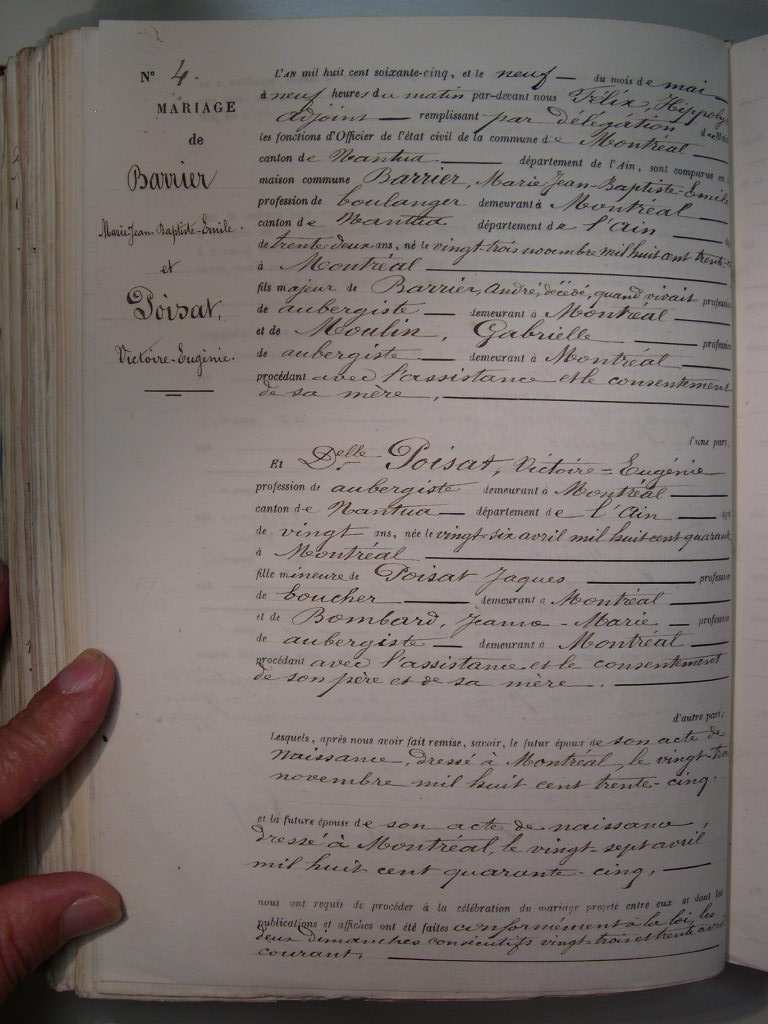 N° 4.
MARIAGE
de
Barrier
Marie-Jean-Baptiste-Emile.
et
Poisat,
Victoire-Eugénie.
L'AN mil huit cent soixante-cinq, et le neuf du mois de mai
à neuf heures du matin par-devant nous Félix, Hippoly
adjoint remplissant par délégation
les fonctions d'Officier de l'état civil de la commune de Montréal
canton de Nantua département de l'Ain, sont comparus en
maison commune Barrier, Marie-Jean-Baptiste-Emile
profession de boulanger demeurant à Montréal
canton de Nantua département de l'Ain
de trente deux ans, né le vingt-trois novembre mil huit cent trente-
à Montréal
fils majeur de Barrier, André, décédé, quand vivait profession
de aubergiste demeurant à Montréal
et de Moulin, Gabrielle profession
de aubergiste demeurant à Montréal
procédant avec l'assistance et le consentement
de sa mère,
d'une part,
Et Delle Poisat, Victoire=Eugénie
profession de aubergiste demeurant à Montréal
canton de Nantua département de l'Ain âgé
de vingt ans, née le vingt-six avril mil huit cent quarant
à Montréal
fille mineure de Poisat Jaques profession
de boucher demeurant à Montréal
et de Bombard, Jeanne-Marie profession
de aubergiste demeurant à Montréal
procédant avec l'assistance et le consentement
de son père et de sa mère.
d'autre part;
Lesquels, après nous avoir fait remise, savoir, le futur époux de son acte de
naissance, dressé à Montréal, le vingt-tro
novembre mil huit cent trente-cinq.
et la future épouse de son acte de naissance,
dressé à Montréal, le vingt-sept avril
mil huit cent quarante-cinq,
nous ont requis de procéder à la célébration du mariage projeté entre eux et dont les
publications et affiches ont été faites conformément à la loi, les
deux dimanches consécutifs vingt-trois et trente avril
courant,